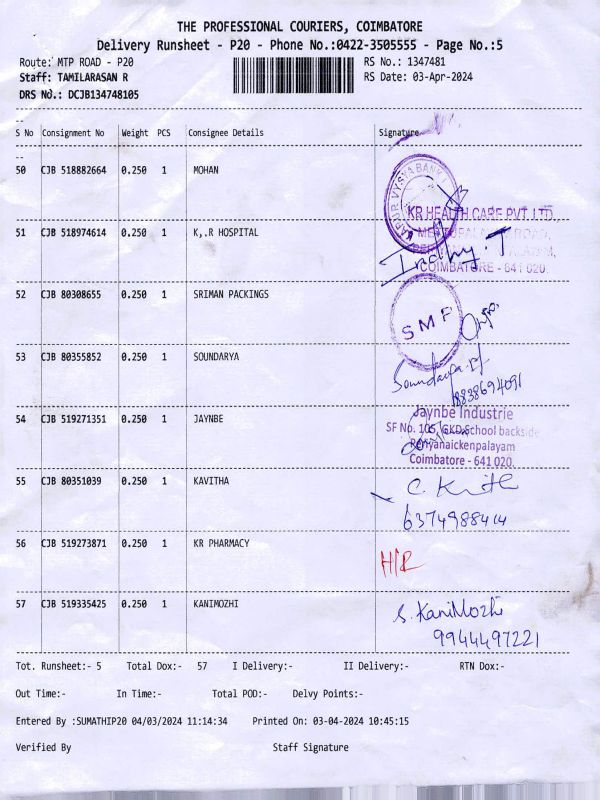 THE PROFESSIONAL COURIERS, COIMBATORE
Delivery Runsheet - P20 - Phone No.:0422-3505555 - Page No.:5
Route: MTP ROAD - P20 RS No.: 1347481
Staff: TAMILARASAN R RS Date: 03-Apr-2024
DRS No.: DCJB134748105
S No Consignment No Weight PCS Consignee Details Signature
50 CJB 518882664 0.250 1 MOHAN
KARUR VYSYA BANK
KR HEALTH CARE PVT.LTD.
51 CJB 518974614 0.250 1 K,.R HOSPITAL
ROAD,
COIMBATORE - 641 020.
52 CJB 80308655 0.250 1 SRIMAN PACKINGS
SMP
53 CJB 80355852 0.250 1 SOUNDARYA
Soundarya
8838694091
54 CJB 519271351 0.250 1 JAYNBE
Jaynbe Industrie
SF No. 105, GKD School backside
Periyanaickenpalayam
Coimbatore - 641 020.
55 CJB 80351039 0.250 1 KAVITHA
6374988414
56 CJB 519273871 0.250 1 KR PHARMACY
H/R
57 CJB 519335425 0.250 1 KANIMOZHI
S. KaniMozhi
9944497221
Tot. Runsheet:- 5 Total Dox:- 57 I Delivery:- II Delivery:- RTN Dox:-
Out Time:- In Time:- Total POD:- Delvy Points:-
Entered By :SUMATHIP20 04/03/2024 11:14:34 Printed On: 03-04-2024 10:45:15
Verified By Staff Signature